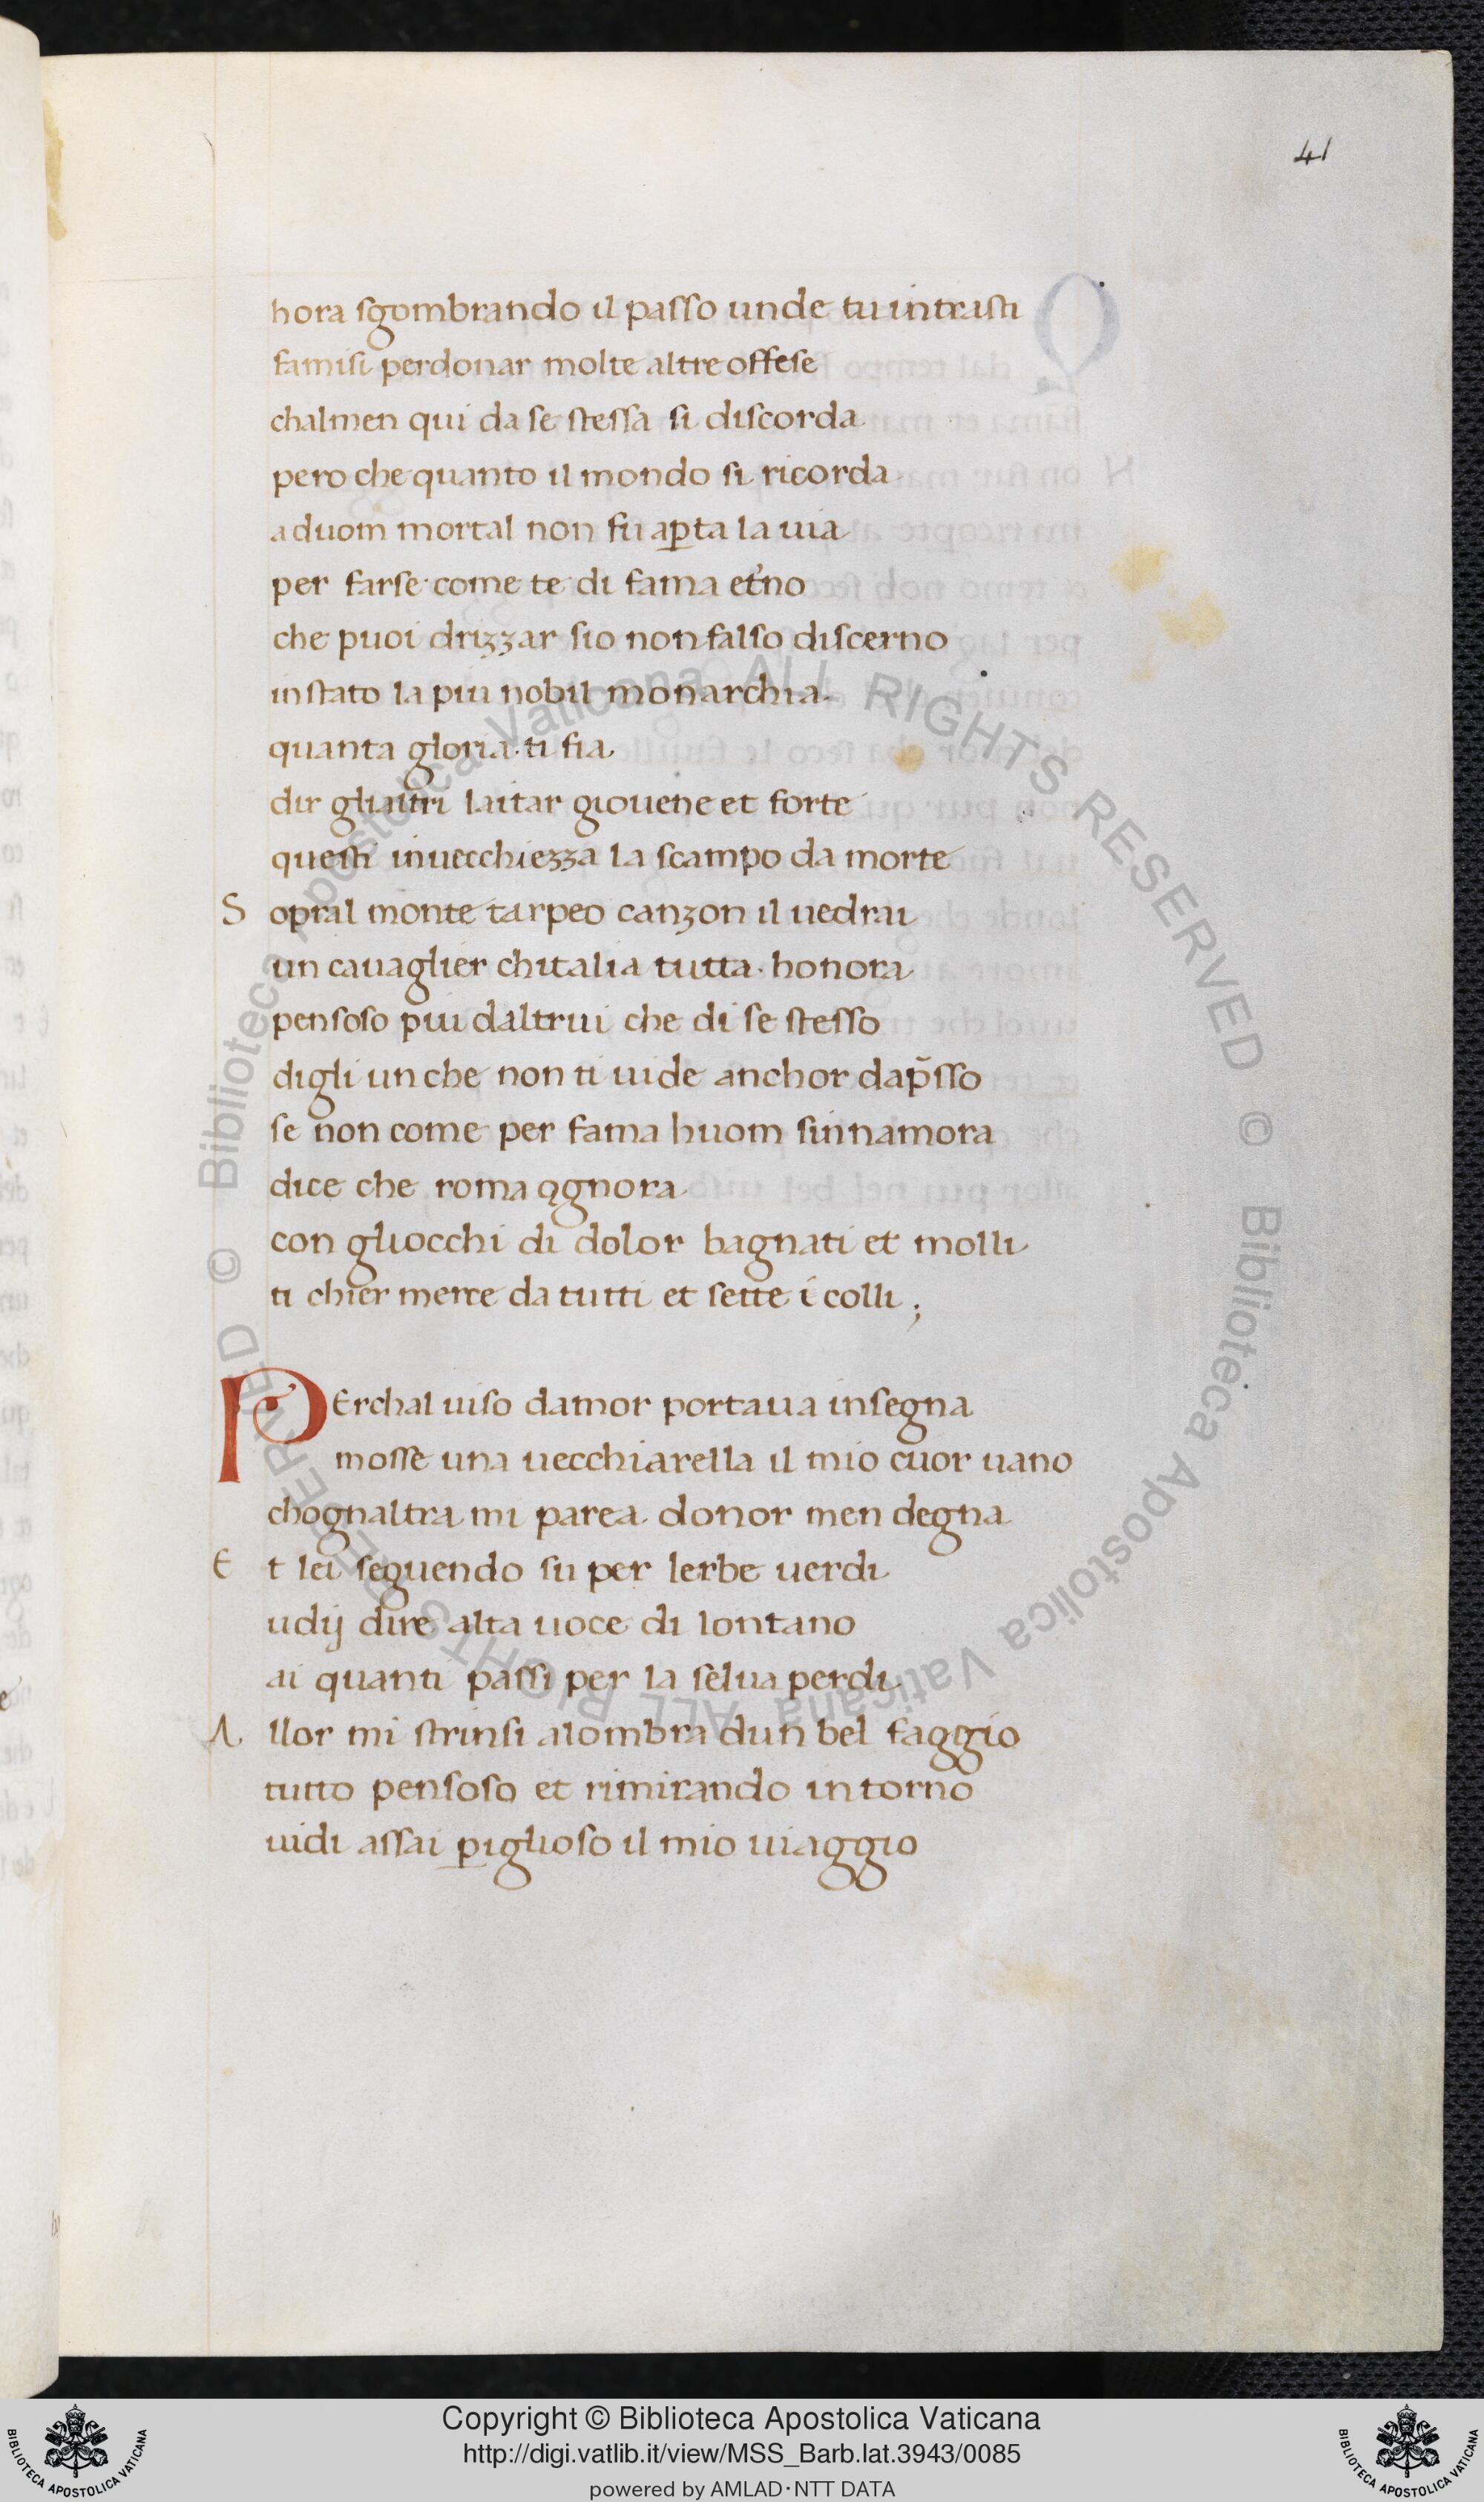 41
hora sgombrando il passo unde tu intrasti
famisi perdonar molte altre offese
chalmen qui da se stessa si discorda
pero che quanto il mondo si ricorda
aduom mortal non fu ap̲ta la uia
per farse come te di fama et̓no
che puoi drizzar sio non falso discerno
in stato la piu nobil monarchia
quanta gloria ti fia
dir glialtri laitar giouene et forte
questi in uecchiezza la scampo da morte
S opral monte tarpeo canzon il uedrai
un cauaglier chitalia tutta honora
pensoso piu daltrui che di se stesso
digli un che non ti uide anchor dap̄sso
se non come per fama huom sinnamora
dice che roma ognora
con gliocchi di dolor bagnati et molli
ti chier merce da tutti et sette i colli ;
PErchal uiso damor portaua insegna
mosse una uecchiarella il mio cuor uano
chognaltra mi parea donor men degna
E t lei seguendo su per lerbe uerdi
udij dire alta uoce di lontano
ai quanti passi per la selua perdi
A llor mi strinsi alombra dun bel faggio
tutto pensoso et rimirando intorno
uidi assai p̲iglioso il mio uiaggio
© Biblioteca Apostolica Vaticana ALL RIGHTS RESERVED © Biblioteca Apostolica Vaticana ALL RIGHTS RESERVED
Copyright © Biblioteca Apostolica Vaticana
http://digi.vatlib.it/view/MSS_Barb.lat.3943/0085
powered by AMLAD·NTT DATA
BIBLIOTECA APOSTOLICA VATICANA
BIBLIOTECA APOSTOLICA VATICANA